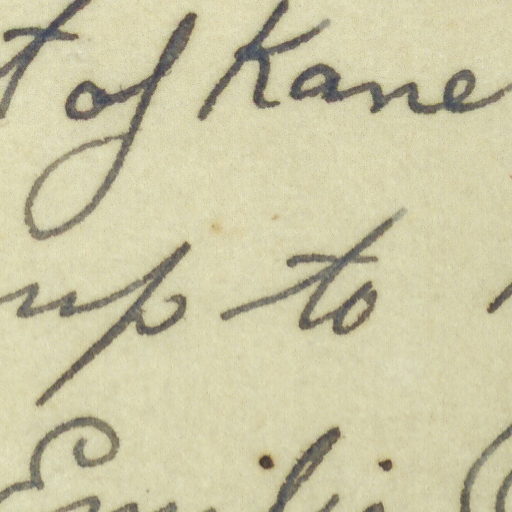 t of Kane
up to
Emilie